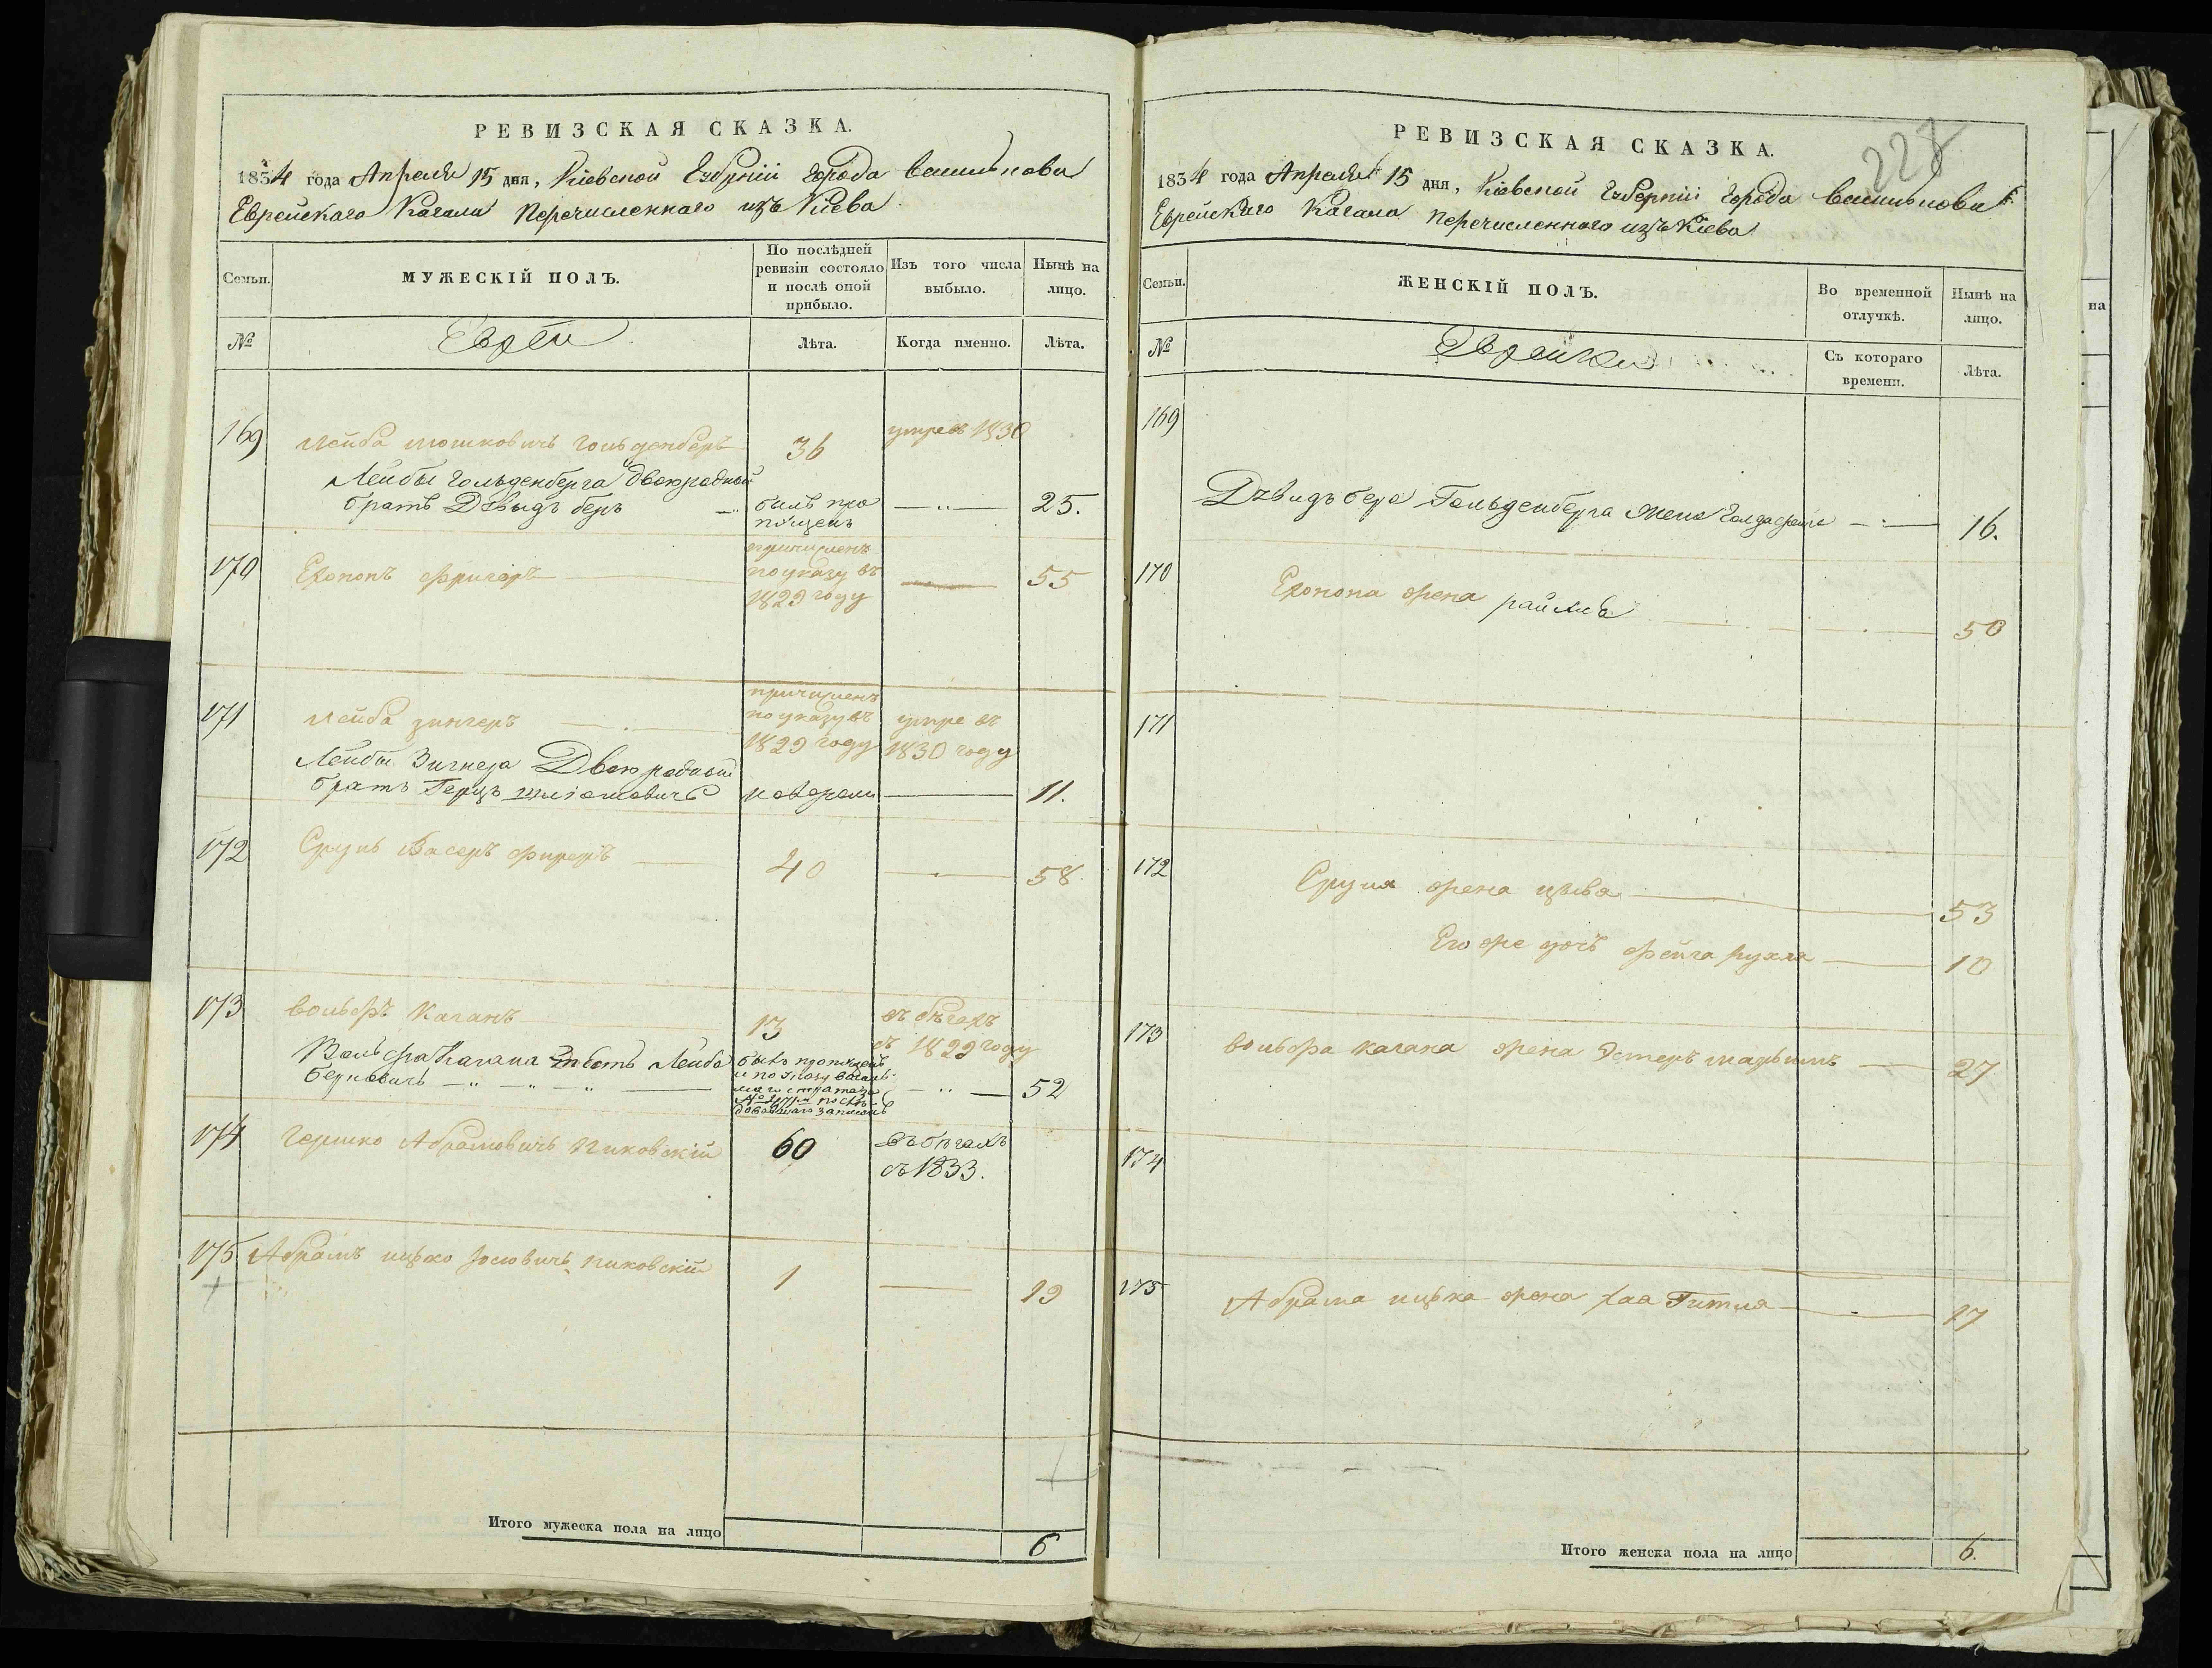 РЕВИЗСКАЯ СКАЗКА.
1834 года Апреля 15 дня, Кіевской Губерніи города Василькова
Еврейскаго Кагала перечисленнаго изъ Кіева
Семьи. МУЖЕСКІЙ ПОЛЪ. По послѣдней ревизіи состояло и послѣ оной прибыло. Изъ того числа выбыло. Нынѣ на лицо.
№ Евреи Лѣта. Когда именно. Лѣта.
169 Лейба Мошковичъ Гольденберъ 36 умре въ 1830
Лейбы Гольденберга двоюродный
братъ Дввидъ беръ былъ пропущенъ 25.
170 причисленъ по указу въ 1829 году 55
171 Лейба зингеръ причисленъ по указу въ 1829 году умре въ 1830 году
Лейбы Зингера Двоюродный
братъ Герцъ 11.
172 Сруль 40 58
173 вольфъ Каганъ 13 въ бѣгахъ съ 1829 году
Вольфа Кагана Зять Лейба
Берковичъ былъ пропущенъ и по указу 52
174 Гершко Абрамовичъ Пиковскій 60 въ бѣгахъ съ 1833.
175 Абрамъ ицько Іосіовичъ Пиковскій 1 19
Итого мужеска пола на лицо 6
228
РЕВИЗСКАЯ СКАЗКА.
1834 года Апреля 15 дня, Кіевской Губерніи города Василькова
Еврейскаго Кагала перечисленнаго изъ Кіева
Семьи. ЖЕНСКІЙ ПОЛЪ. Во временной отлучкѣ. Нынѣ на лицо.
№ Еврейки Съ котораго времени. Лѣта.
169
Дввидъ бера Гольденберга жена 16.
170 жена райзля 50
171
172 Сруля жена цывя 53
Его же дочь фейга рухля 10
173 вольфа кагана жена Эстеръ 27
174
175 Абрама ицька жена хая Гитля 17
Итого женска пола на лицо 6.
на